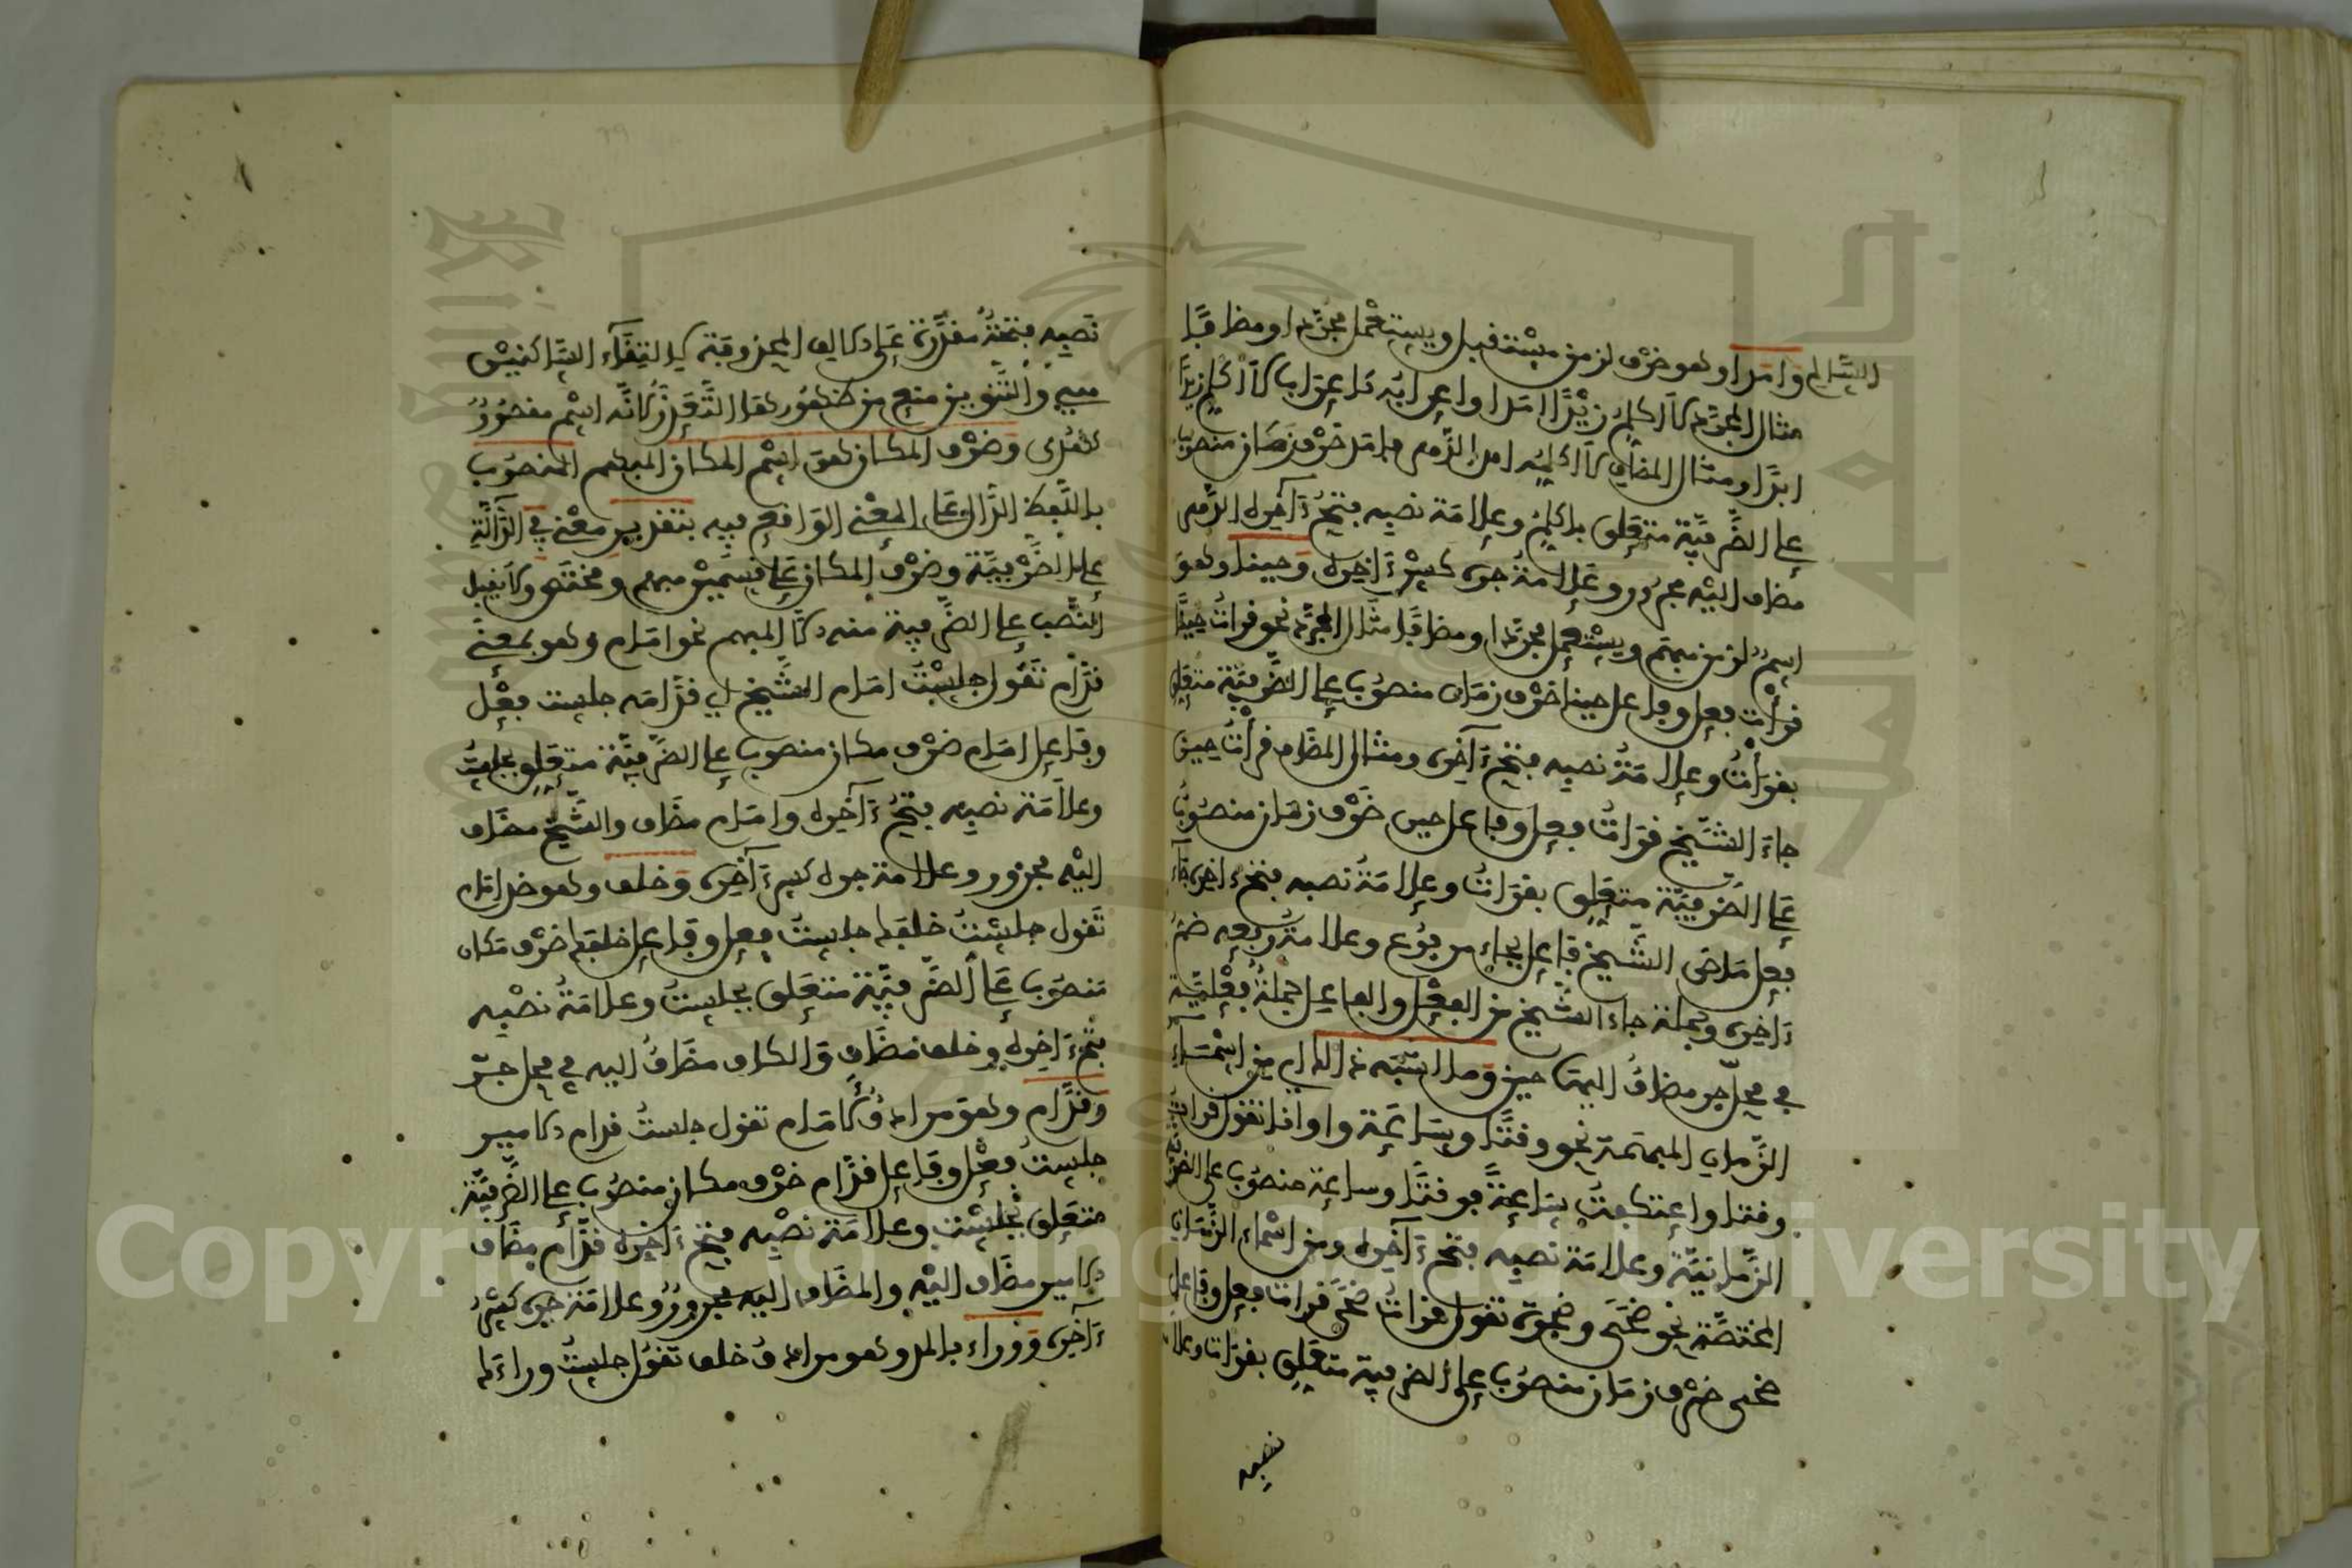 السالم وامدا وهو ظرف لزمن مستقبل ويستعمل مجردا ومضافا
مثال المجرد لا اكلم زيدا امدا واعرابه كاعراب لا اكلم زيدا
ابدا ومثال المضاف لا اكلمه امد الدهر فامد ظرف زمان منصوب
على الظرفية متعلق باكلم وعلامة نصبه فتح ءاخره الدهر
مضاف اليه مجرور وعلامة جره كسر ءاخره وحينا وهو
اسم لزمن مبهم ويستعمل مجردا ومضافا مثال المجرد نحو قرات حينا
قرات فعل وفاعل حينا ظرف زمان منصوب على الظرفية متعلق
بقرات وعلامة نصبه فتح ءاخره ومثال المضاف قرات حين
جاء الشيخ قرات فعل وفاعل حين ظرف زمان منصوب
على الظرفية متعلق بقرات وعلامة نصبه فتح ءاخره جاء
فعل ماض الشيخ فاعل بجاء مرفوع وعلامة رفعه ضم
ءاخره وجملة جاء الشيخ من الفعل والفاعل جملة فعلية
في محل جر مضاف اليها حين وما اشبه ذالك من اسماء
الزمان المبهمة نحو وقتا وساعة واوانا تقول قرات
وقتا واعتكفت ساعة فوقتا وساعة منصوب على الظرفية
الزمانية وعلامة نصبه فتح ءاخره ومن اسماء الزمان
المختصة نحو ضحى وضحوة تقول قرات ضحى قرات فعل وفاعل
ضحى ظرف زمان منصوب على الظرفية متعلق بقرات وعلامة
نصبه
نصبه فتحة مقدرة على الالف المحذوفة لالتقاء الساكنين
والتنوين منع من ظهورها التعذر لانه اسم مقصور
وظرف المكان هو اسم المكان المبهم المنصوب
باللفظ الدال على المعنى الواقع فيه بتقدير معنى في الدالة
على الظرفية وظرف المكان على قسمين مبهم ومختص ولا يقبل
النصب على الظرفية منه الا المبهم نحو امام وهو بمعنى
قدام تقول جلست امام الشيخ اي قدامه جلست فعل
وفاعل امام ظرف مكان منصوب على الظرفية متعلق بجلست
وعلامة نصبه فتح ءاخره وامام مضاف والشيخ مضاف
اليه مجرور وعلامة جره كسر ءاخره وخلف وهو ضد امام
تقول جلست خلفك جلست فعل وفاعل خلفك ظرف مكان
منصوب على الظرفية متعلق بجلست وعلامة نصبه
فتح ءاخره وخلف مضاف والكاف مضاف اليه في محل جر
وقدام وهو مرادف لامام تقول جلست قدام الامير
جلست فعل وفاعل قدام ظرف مكان منصوب على الظرفية
متعلق بجلست وعلامة نصبه فتح ءاخره قدام مضاف
الامير مضاف اليه والمضاف اليه مجرور وعلامة جره كسر
ءاخره ووراء بالمد وهو مرادف خلف تقول جلست وراءك